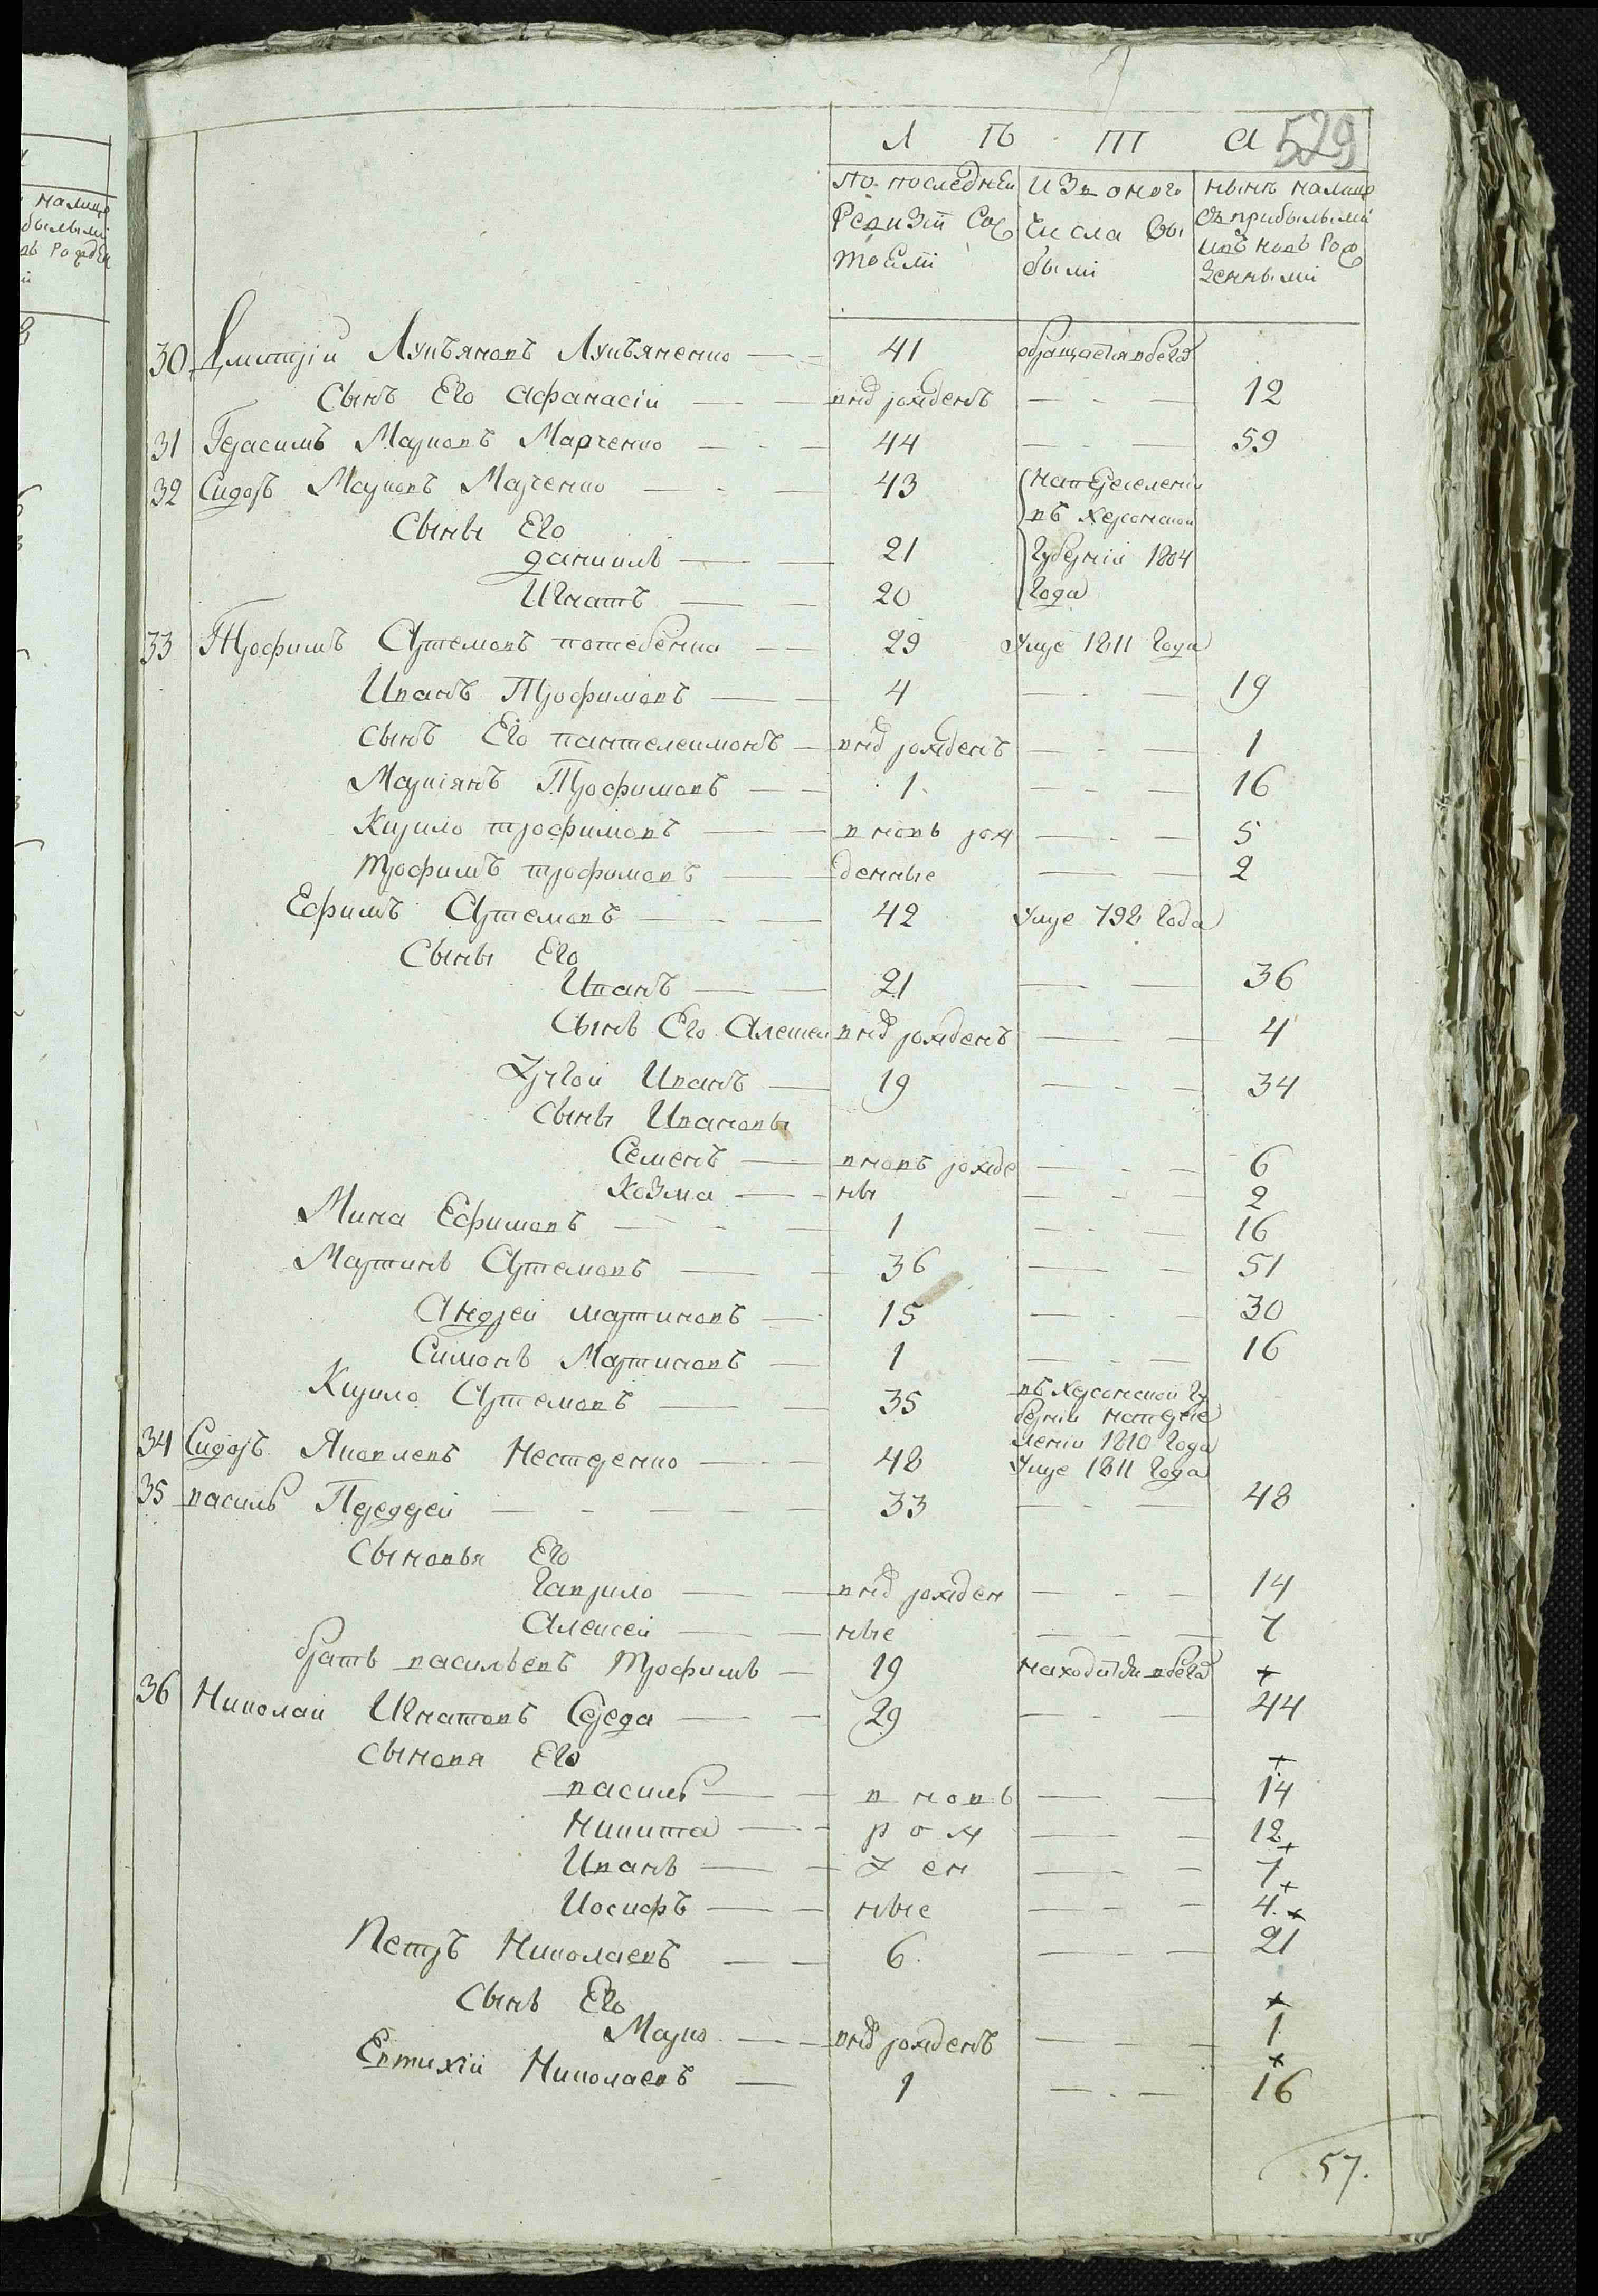 529
Л ѣ т а
По последней Ревизіи Состоѣли
Изъ оного числа выбыли
Нынѣ налицо съ прибылыми и въ новѣ рожденными
30 Дмитрій Лукъяновъ Лукъяненко — 41 обращается въ бегахъ
Сынъ Его Афанасій — внов рожденъ — 12
31 Герасимъ Марковъ Марченко — 44 — 59
32 Сидоръ Марковъ Марченко — 43 на переселеніи
въ Херсонской
Сыны Его
Даниилъ — 21 Губерніи 1804
Игнатъ — 20 Года
33 Трофимъ Артемовъ потебенка — 29 Умре 1811 Года
Иванъ Трофимовъ — 4 — 19
сынъ Его пантелеимонъ — внов рожденъ — 1
Маркіянъ Трофимовъ — 1 — 16
Кирило трофимовъ — вновь рож — 5
трофимъ трофимовъ — денные — 2
Ефимъ Артемовъ — 42 Умре 798 Года
Сыны Его
Иванъ — 21 — 36
Сынъ Его Алексей внов рожденъ — 4
Другой Иванъ — 19 — 34
Сыны Ивановы
Семенъ — вновъ рожде — 6
Козма — ны — 2
Мина Ефимовъ — 1 — 16
Мартинъ Артемовъ — 36 — 51
Андрей мартиновъ — 15 — 30
Симонъ Мартиновъ — 1 — 16
Кирило Артемовъ — 35 въ Херсонской Гу
берніи на пересе
леніи 1810 Года
34 Сидоръ Яковлевъ Нестеренко — 48 Умре 1811 Года
35 василь Передрей — 33 — 48
Сыновья Его
Гаврило — внов рожден — 14
Алексей — ные — 7
братъ васильевъ трофимъ — 19 находится в бегах +
36 Николай Игнатовъ Середа — 29 — 44
Сыновя Его +
василь — в новь — 14
Никита — р о ж — 12 +
Иванъ — д ен — 7 +
Иосифъ — ные — 4. +
Петръ Николаевъ — 6. — 21
Сынъ Его +
Марко — внов рожденъ — 1
+
Евтихій Николаевъ — 1 — 16
57.